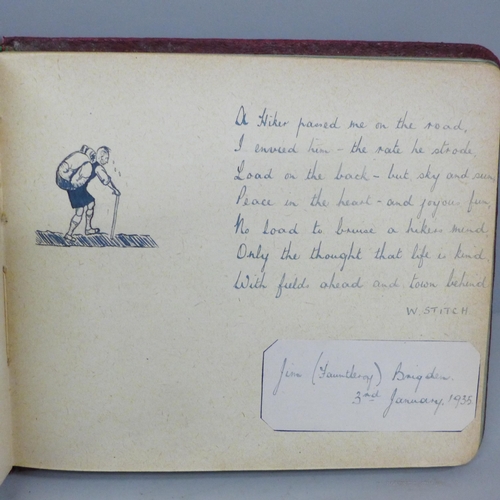 A Hiker passed me on the road,
I envied him - the rate he strode
Load on the back - but sky and sun
Peace in the heart - and joyous fun
No load to bruise a hikers mind
Only the thought that life is kind
With fields ahead and town behind
W. STITCH
Jim (Fauntleroy) Brigden.
3rd January, 1935